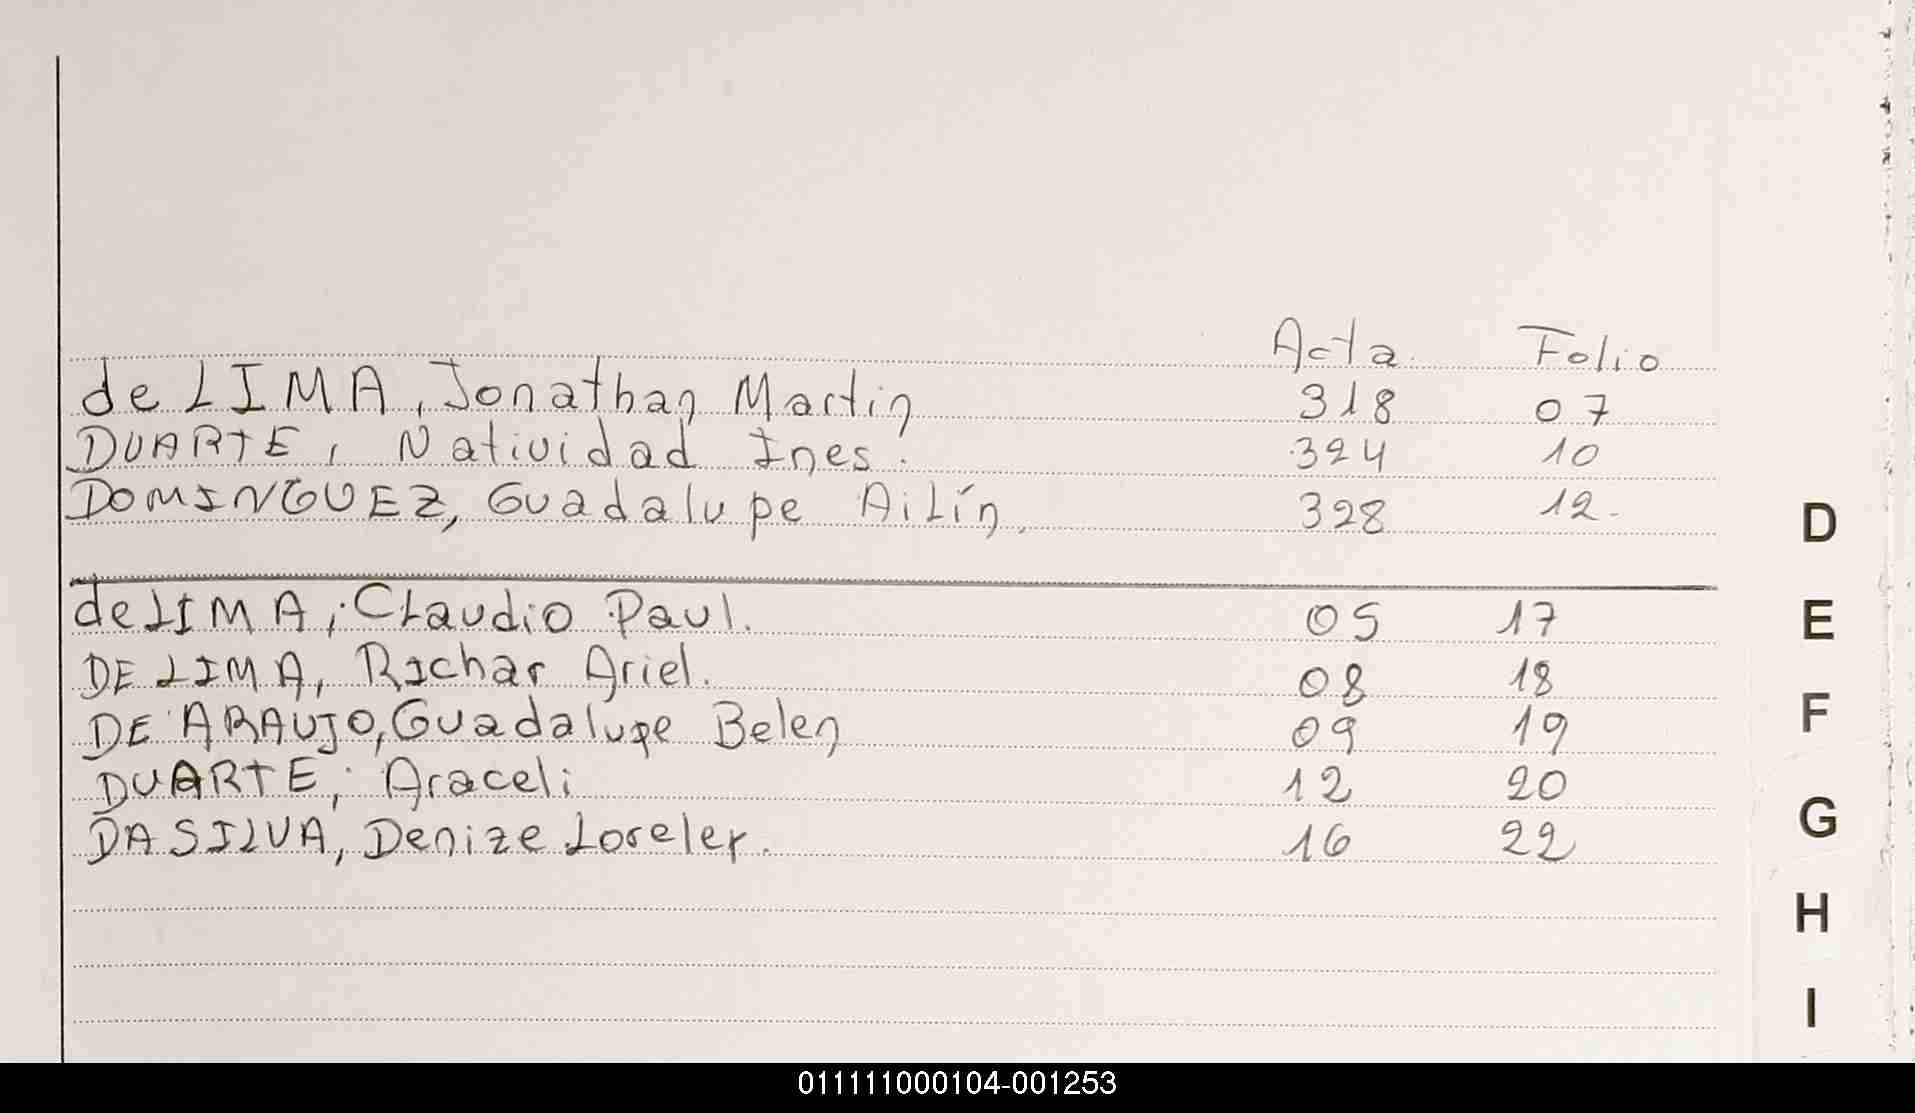 Acta Folio
de LIMA, Jonathan Martin 318 07
DUARTE, Natividad Ines. 324 10
DOMINGUEZ, Guadalupe Ailín. 328 12.
de LIMA, Claudio Paul. 05 17
DE LIMA, Richar Ariel. 08 18
DE ARAUJO, Guadalupe Belen 09 19
DUARTE, Araceli 12 20
DA SILVA, Denize Loreley. 16 22
D
E
F
G
H
I
011111000104-001253